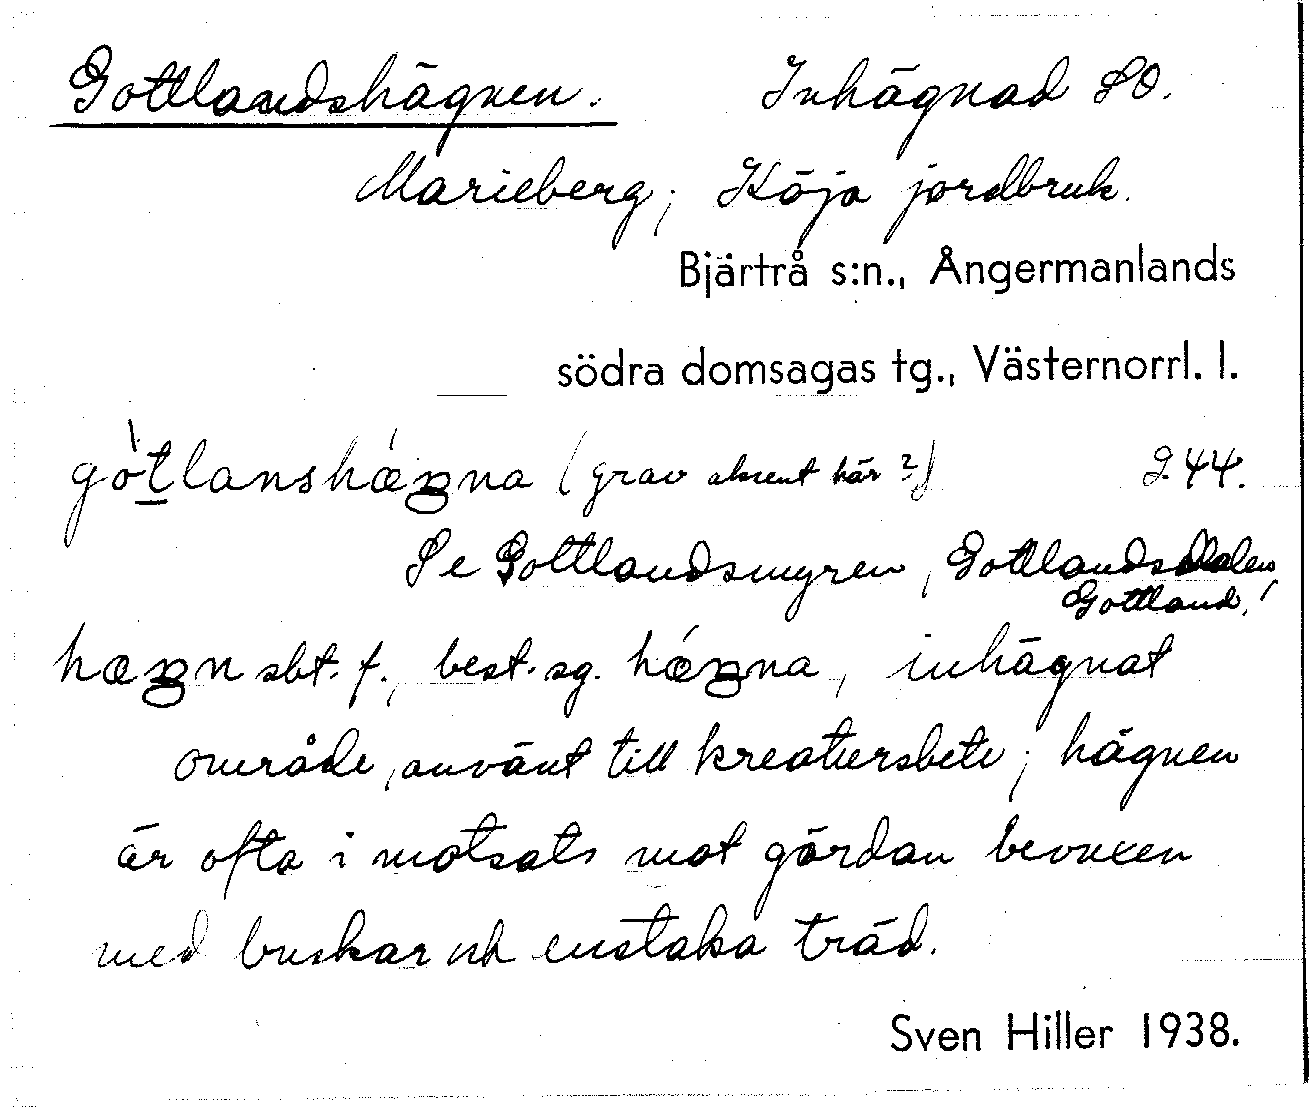 Gottlandshägnen. Inhägnad SO.
Marieberg; Köja jordbruk.
Bjärtrå s:n., Ångermanlands
södra domsagas tg., Västernorrl. l.
gòt̲lanshǽŋna (grav aksent här?) 244.
Se Gottlandsmyren, Gottlandsdalen,
Gottland!
hæŋn sbt. f., best. sg. hǽŋna, inhägnat
område, använt till kreatursbete; hägnen
är ofta i motsats mot gärdan bevuxen
med buskar och enstaka träd.
Sven Hiller 1938.